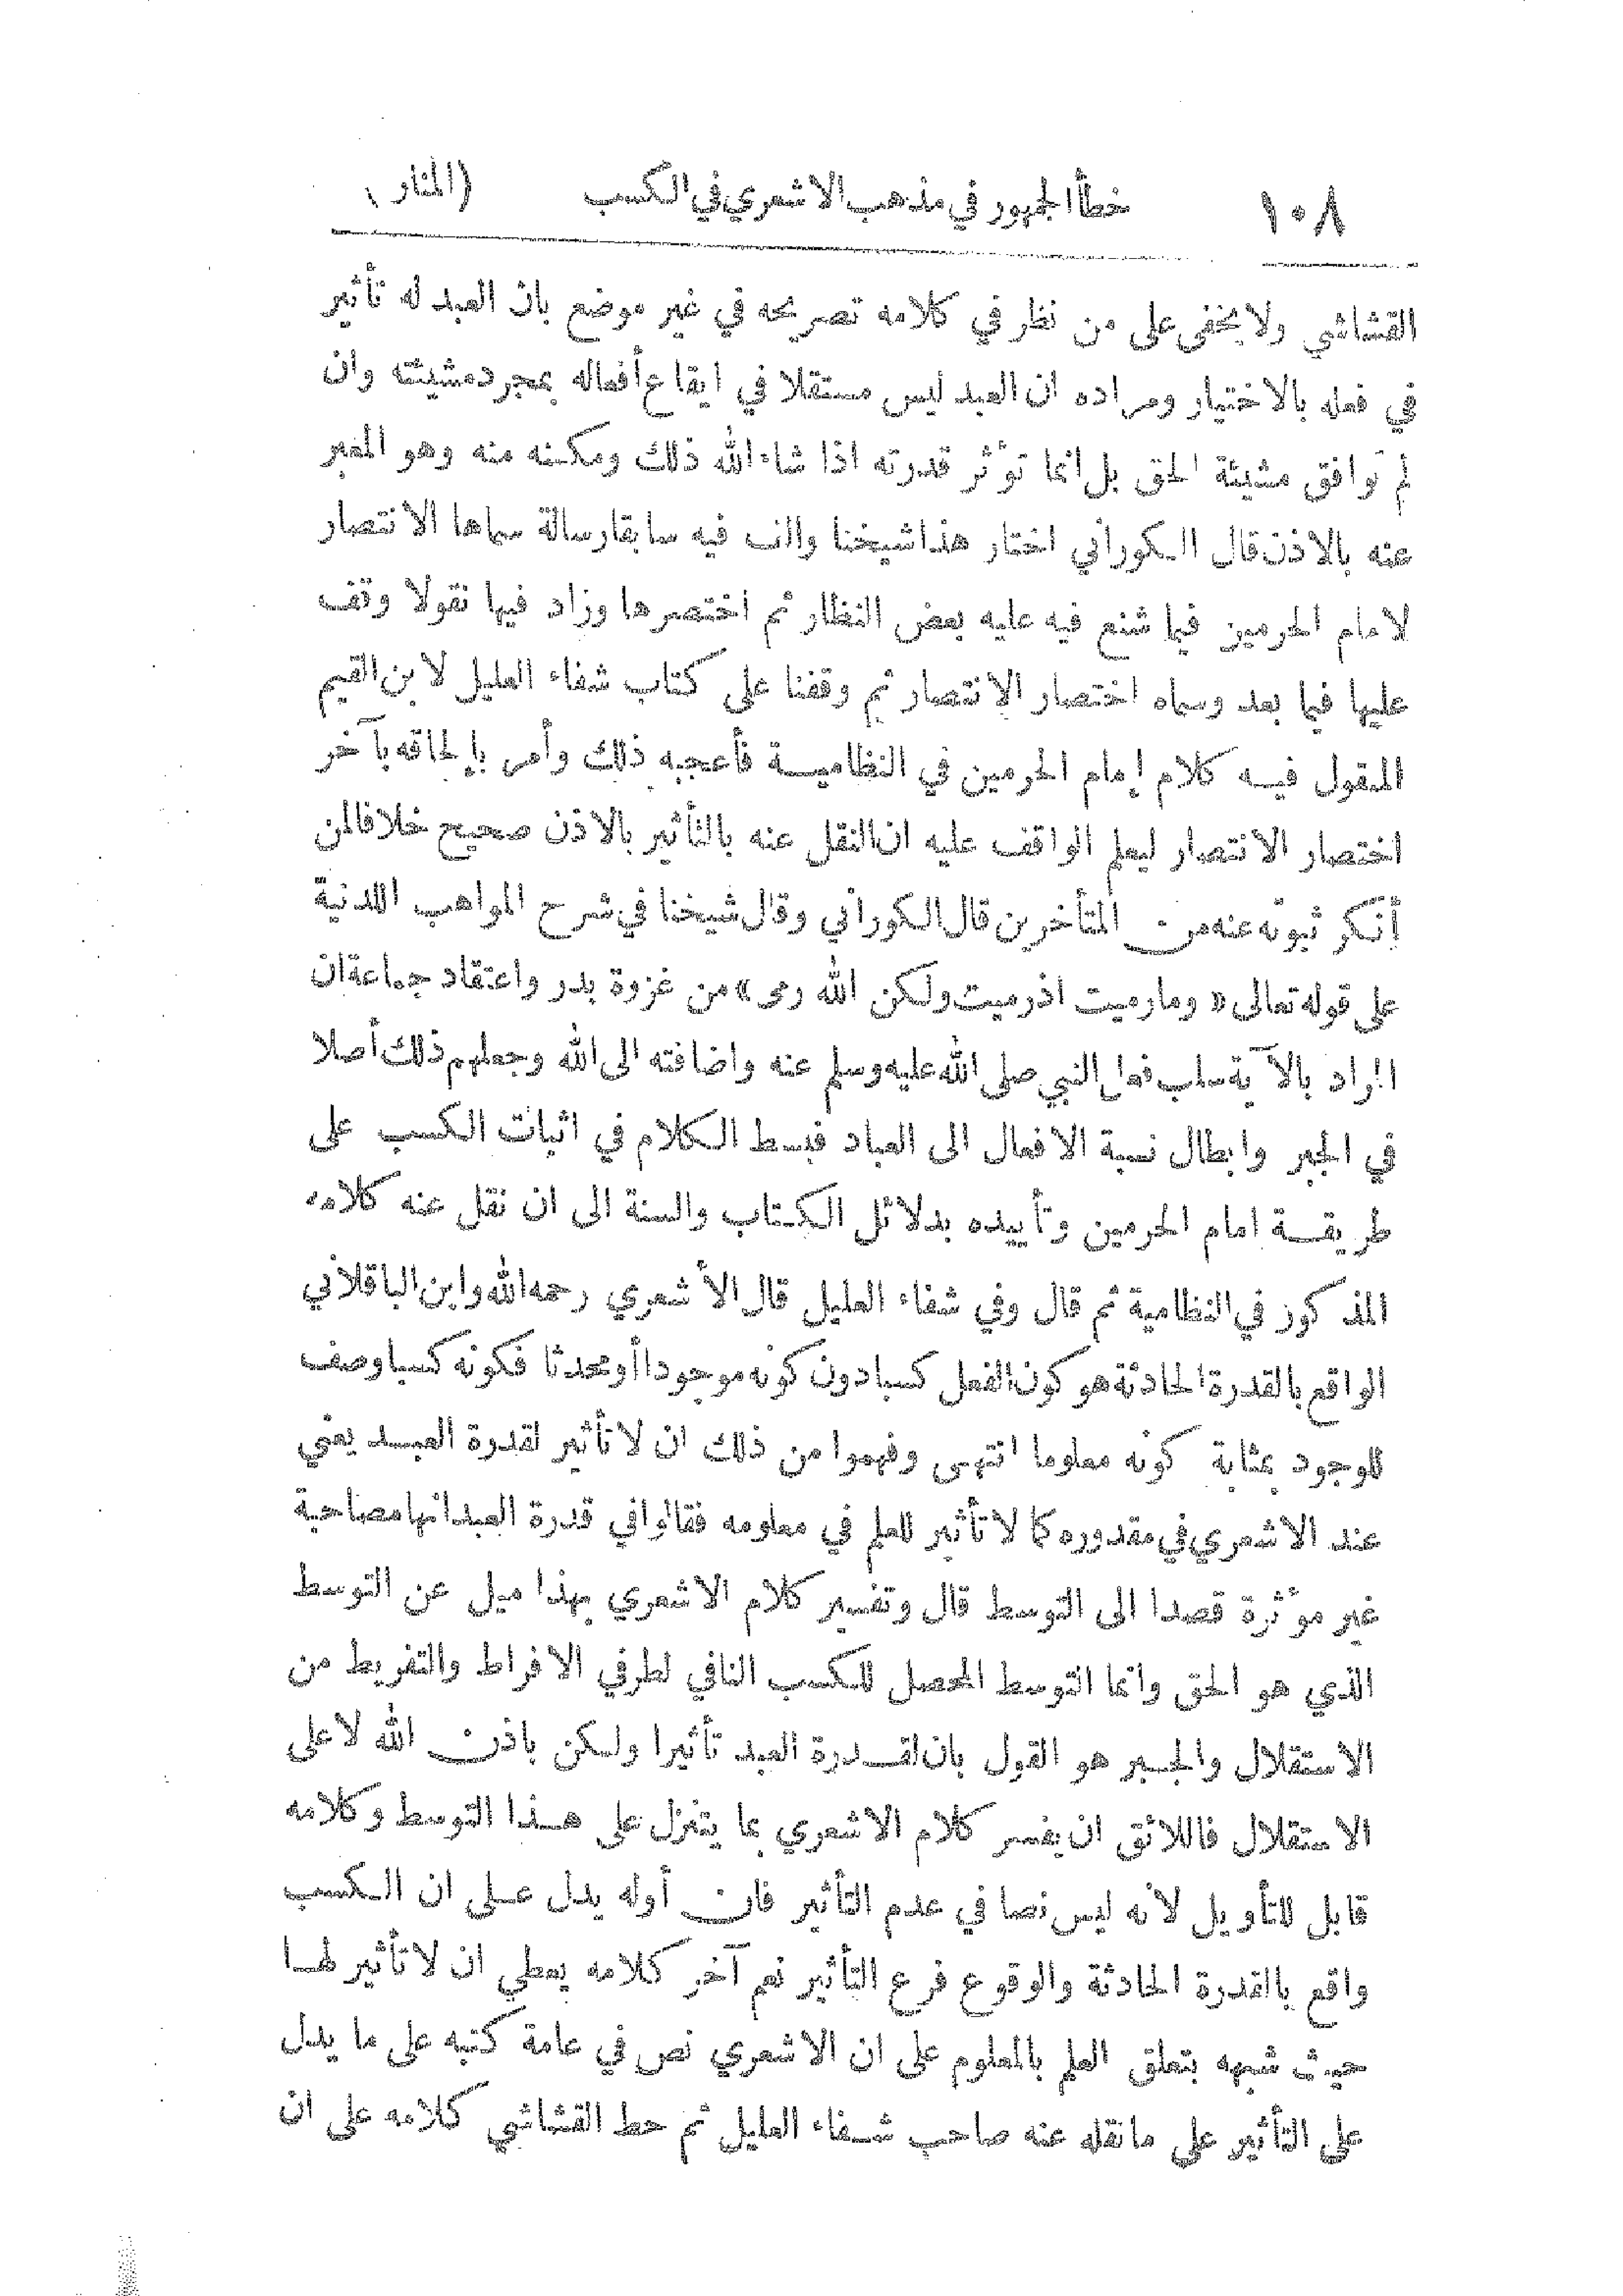 ١٠٨ خطأ الجمهور في مذهب الاشعري في الكسب (المنار)
القشاشي ولا يخفى على من نظر في كلامه تصريحه في غير موضع بان العبد له تأثير
في فعله بالاختيار ومراده ان العبد ليس مستقلا في ايقاع أفعاله بمجرد مشيئته وان
لم توافق مشيئة الحق بل انما تؤثر قدرته اذا شاء الله ذلك ومكنه منه وهو المعبر
عنه بالاذن قال الكوراني اختار هذا شيخنا والف فيه سابقا رسالة سماها الانتصار
لامام الحرمين فيما شنع فيه عليه بعض النظار ثم اختصرها وزاد فيها نقولا وقف
عليها فيما بعد وسماه اختصار الانتصار ثم وقفنا على كتاب شفاء العليل لابن القيم
المنقول فيه كلام إمام الحرمين في النظامية فأعجبه ذلك وأمر بإلحاقه بآخر
اختصار الانتصار ليعلم الواقف عليه ان النقل عنه بالتأثير بالاذن صحيح خلافا لمن
أنكر ثبوته عنه من المتأخرين قال الكوراني وقال شيخنا في شرح المواهب اللدنية
على قوله تعالى «وما رميت اذ رميت ولكن الله رمى» من غزوة بدر واعتقاد جماعة ان
المراد بالآية سلب فعل النبي صلى الله عليه وسلم عنه واضافته الى الله وجعلهم ذلك أصلا
في الجبر وابطال نسبة الافعال الى العباد فبسط الكلام في اثبات الكسب على
طريقة امام الحرمين وتأييده بدلائل الكتاب والسنة الى ان نقل عنه كلامه
المذكور في النظامية ثم قال وفي شفاء العليل قال الأشعري رحمه الله وابن الباقلاني
الواقع بالقدرة الحادثة هو كون الفعل كسبا دون كونه موجودا أو محدثا فكونه كسبا وصف
للوجود بمثابة كونه معلوما انتهى وفهموا من ذلك ان لا تأثير لقدرة العبد يعني
عند الاشعري في مقدوره كما لا تأثير للعلم في معلومه فقالوا في قدرة العبد انها مصاحبة
غير مؤثرة قصدا الى التوسط قال وتفسير كلام الاشعري بهذا ميل عن التوسط
الذي هو الحق وانما التوسط المحصل للكسب النافي لطرفي الافراط والتفريط من
الاستقلال والجبر هو القول بان لقدرة العبد تأثيرا ولكن باذن الله لا على
الاستقلال فاللائق ان يفسر كلام الاشعري بما يتنزل على هذا التوسط وكلامه
قابل للتأويل لأنه ليس نصا في عدم التأثير فان أوله يدل على ان الكسب
واقع بالقدرة الحادثة والوقوع فرع التأثير نعم آخر كلامه يعطي ان لا تأثير لها
حيث شبهه بتعلق العلم بالمعلوم على ان الاشعري نص في عامة كتبه على ما يدل
على التأثير على ما نقله عنه صاحب شفاء العليل ثم حط القشاشي كلامه على ان